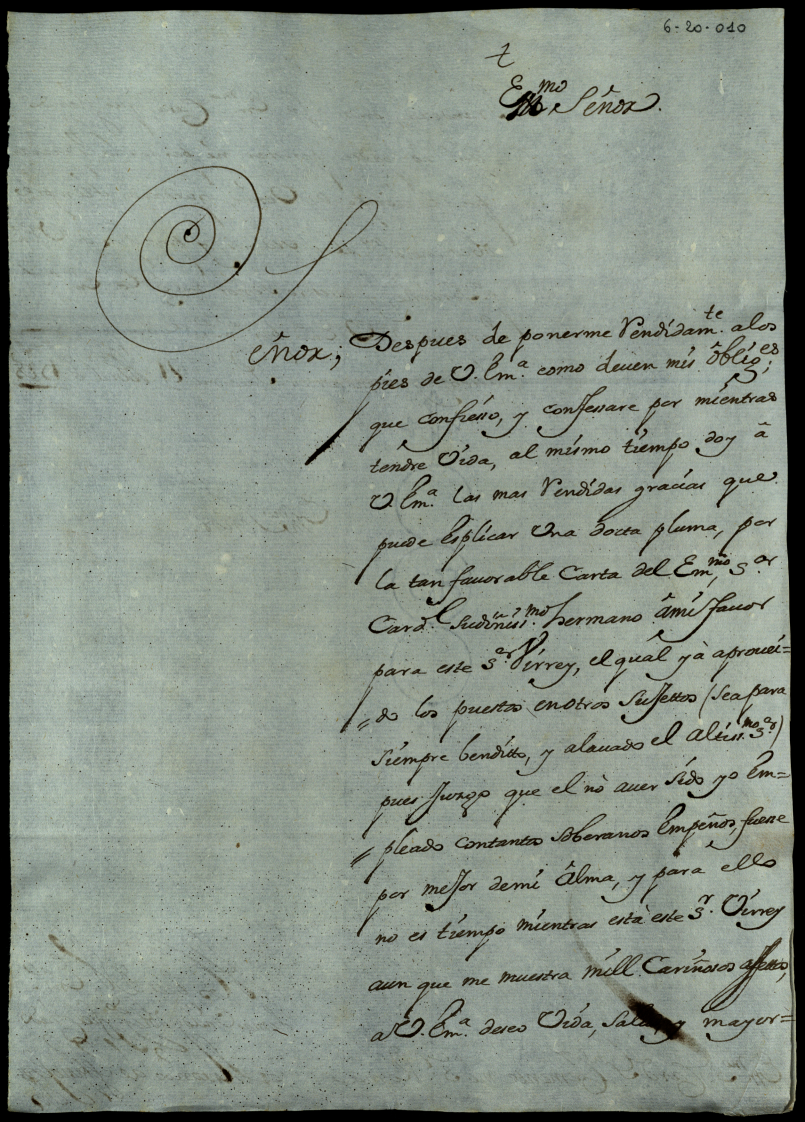 6-20-010
Em.mo Señor.
Señor; Despues de ponerme Rendidam.te a los
pies de V. Em.a como deven mis óblig.es;
que confiesso, y confessare por mientras
tendre Vida, al mismo tiempo doy â
V. Em.a las mas Rendidas gracias que
puede Esplicar Una docta pluma, por
la tan favorable Carta del Em.mo S.or
Card.l Sudiñisi.mo hermano âmi favor
para este S.or Virrey, el qual yà aprovei=
=do los puestos enotros Sujettos (sea para
siempre benditto, y alavado el Altiss.mo S.or)
pues Juzgo que el nò aver sido yo Em=
=pleado contantos soberanos Empeños, fuesse
por mejor demi Âlma, y para êllo
no es tiempo mientras està este S.r Virrey
aun que me muestra mill Cariñosos affettos,
a V. Em.a deseo Vida, Salud, y mayor=